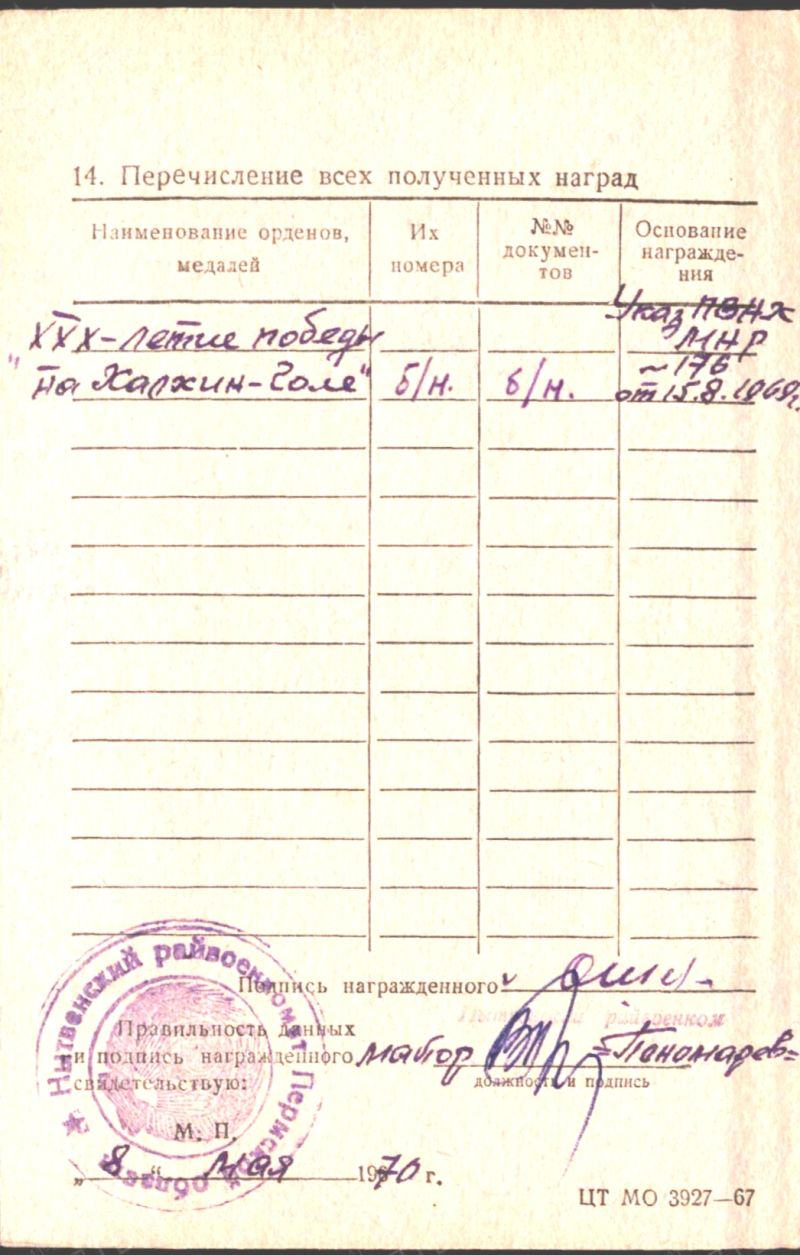 14. Перечисление всех полученных наград
Наименование орденов, медалей
Их номера
№№ докумен-
тов
Основание
награжде-
ния
Указ ПВНХ
МНР
~ 176
от 15.8.1969г.
XXX-летие победы
"на Халхин-Голе"
б/н.
б/н.
Подпись награжденного
Нытвенский райвоенком
Правильность данных
и подпись награжденного майор =Пономарев=
свидетельствую:
должность и подпись
М. П.
„8“ мая 1970 г.
Нытвенский райвоенкомат Пермской области
ЦТ МО 3927—67